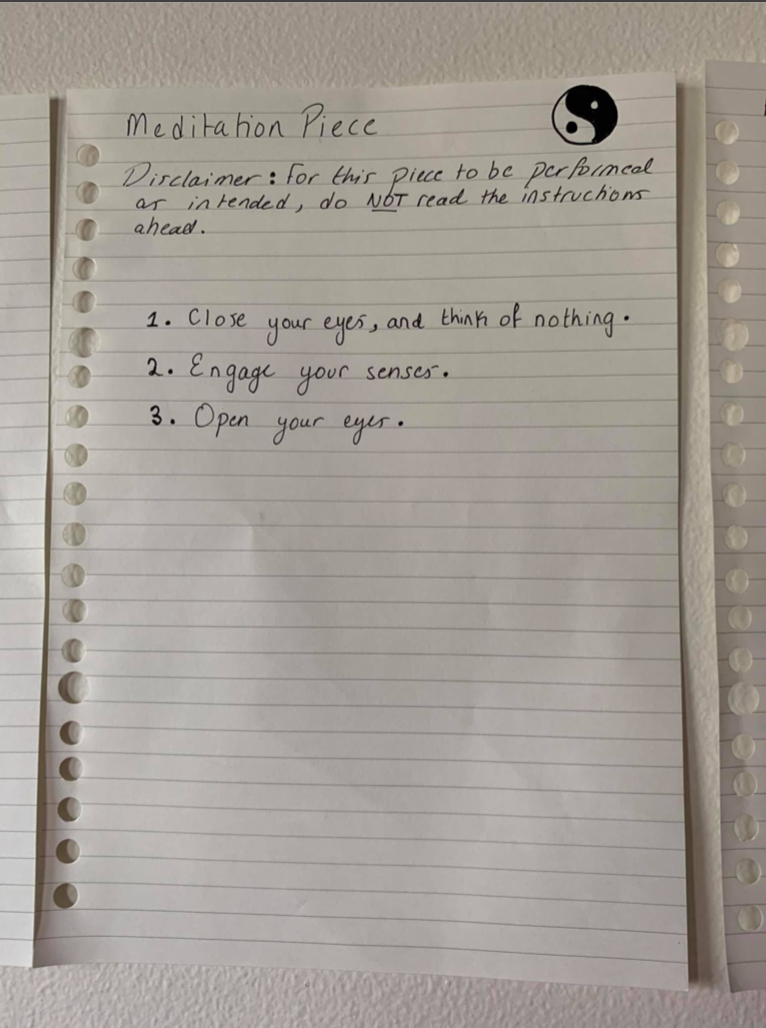 Meditation Piece
Disclaimer: For this piece to be performed
as intended, do NOT read the instructions
ahead.
1. Close your eyes, and think of nothing.
2. Engage your senses.
3. Open your eyes.